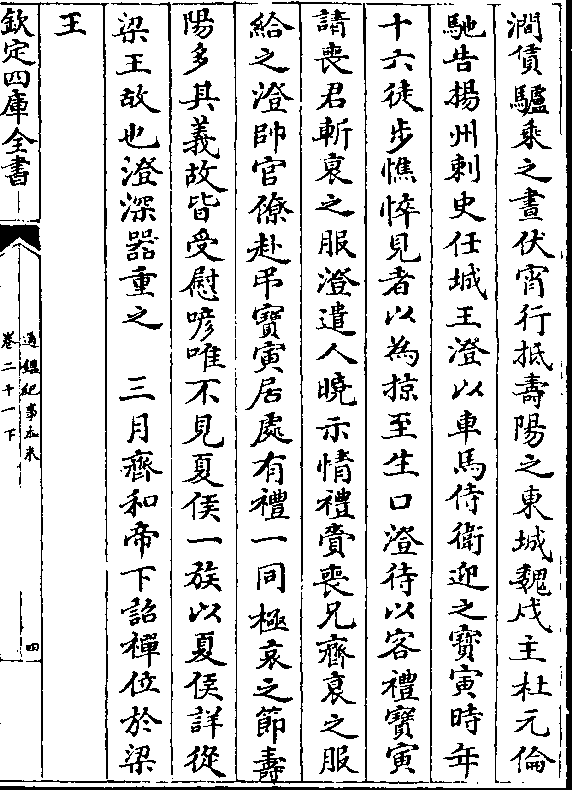 澗賃驢乗之晝伏宵行抵壽陽之東城魏戍主杜元倫
馳告揚州刺史任城王澄以車馬侍衛迎之寶寅時年
十六徒步憔悴見者以為掠至生口澄待以客禮寶寅
請喪君斬衰之服澄遣人曉示情禮賷喪兄齊衰之服
給之澄帥官僚赴弔寶寅居處有禮一同極哀之節壽
陽多其義故皆受慰喭唯不見夏侯一族以夏侯詳從
梁王故也澄深器重之　三月齊和帝下詔禪位於梁
王
欽定四庫全書
通鑑紀事本末
卷二十一下
四